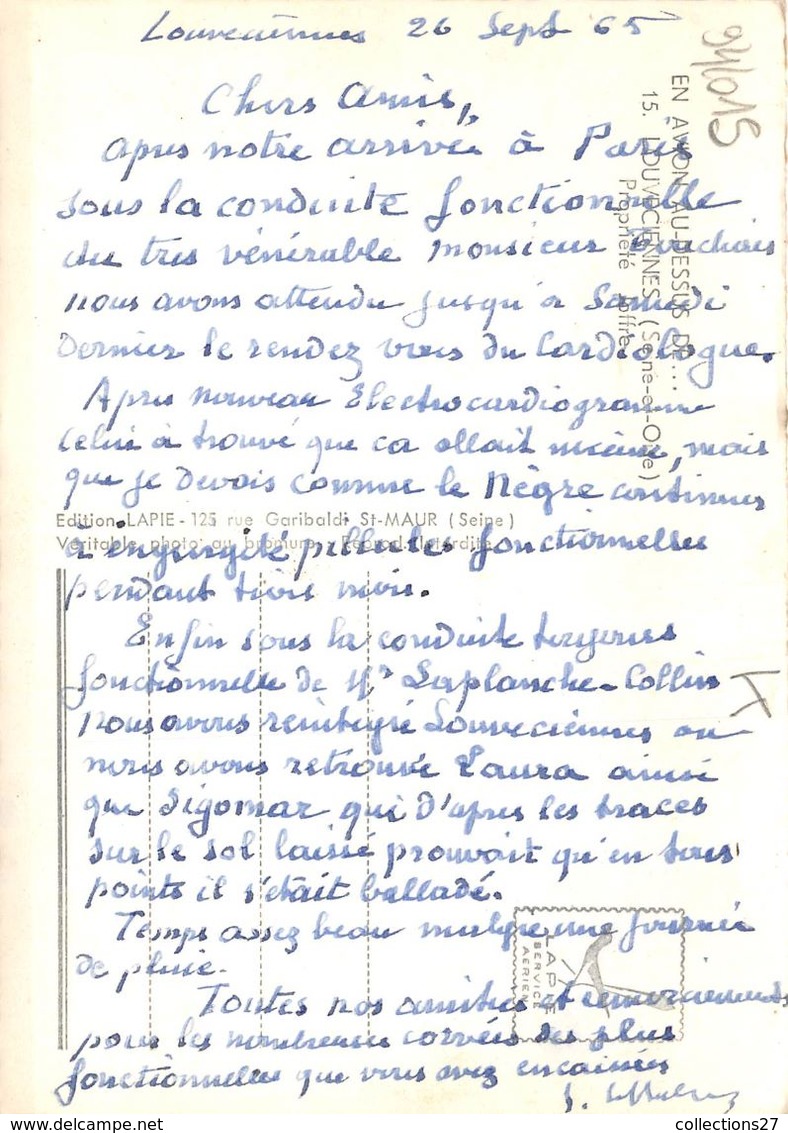 Louveciennes 26 Sept 65
Chers Amis,
apres notre arrivée à Paris
sous la conduite fonctionnelle
du tres vénérable monsieur
nous avons attendu jusqu'a Samedi
Dernier le rendez vous du Cardiologue.
Apres nouveau Electrocardiogramme
celui à trouvé que ca allait mieux, mais
que je devais comme le Nègre continuer
à pillules fonctionnelles
pendant trois mois.
Enfin sous la conduite toujours
fonctionnelle de Mr Laplanche-Collin
nous avons réintégré Louveciennes ou
nous avons retrouvé Laura ainsi
que Sigomar qui d'apres les traces
sur le sol laissé prouvait qu'en tous
points il s'était balladé.
Temps assez beau malgré une journée
de pluie.
Toutes nos amitiés et remerciements
pour les nombreuses corvées des plus
fonctionnelles que vous avez encaissées
EN AVION AU-DESSUS DE...
15. LOUVECIENNES (Seine-et-Oise)
Propriété Joffre
94015
Edition LAPIE - 125 rue Garibaldi St-MAUR (Seine)
Véritable photo au bromure - Reprod. Interdite
LAPIE
SERVICE
AERIEN
collections27